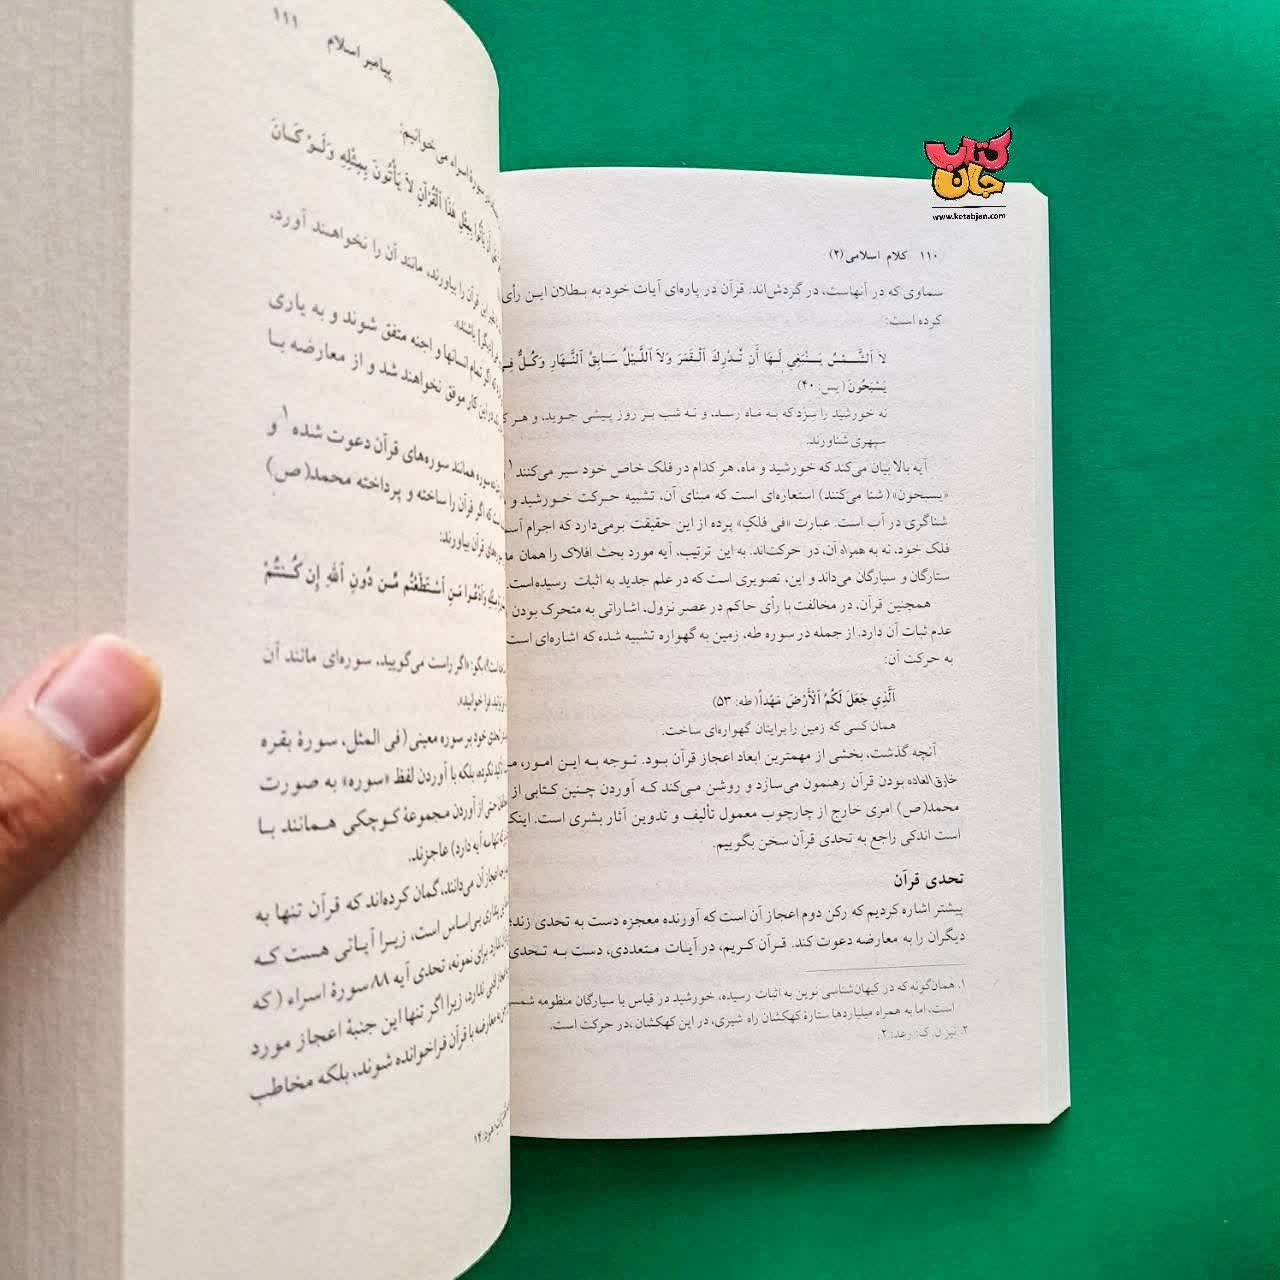 کتاب
جان
www.ketabjan.com
۱۱۰ کلام اسلامی (۲)
سماوی که در آنهاست، در گردش‌اند. قرآن در پاره‌ای آیات خود به بطلان این رأی
کرده است:
لاَ اَلشَّمْسُ یَنْبَغِي لَهَا أَن تُدْرِكَ اَلْقَمَرَ وَلاَ اَللَّیْلُ سَابِقُ اَلنَّهَارِ وَکُلٌّ فِي
یَسْبَحُونَ (یس: ۴۰)
نه خورشید را سِزَد که به ماه رسد، و نه شب بر روز پیشی جوید، و هر
سپهری شناورند.
آیه بالا بیان می‌کند که خورشید و ماه، هر کدام در فلک خاص خود سیر می‌کنند۱
«یسبحون» (شنا می‌کنند) استعاره‌ای است که مبنای آن، تشبیه حرکت خورشید و
شناگری در آب است. عبارت «فی فلکٍ» پرده از این حقیقت برمی‌دارد که اجرام
فلک خود، نه به همراه آن، در حرکت‌اند. به این ترتیب، آیه مورد بحث افلاک را همان
ستارگان و سیارگان می‌داند و این، تصویری است که در علم جدید به اثبات رسیده‌است.
همچنین قرآن، در مخالفت با رأی حاکم در عصر نزول، اشاراتی به متحرک بودن
عدم ثبات آن دارد. از جمله در سوره طه، زمین به گهواره تشبیه شده که اشاره‌ای است
به حرکت آن:
اَلَّذِي جَعَلَ لَکُمُ اَلْأَرْضَ مَهْداً (طه: ۵۳)
همان کسی که زمین را برایتان گهواره‌ای ساخت.
آنچه گذشت، بخشی از مهمترین ابعاد اعجاز قرآن بود. توجه به این امور،
خارق‌العاده بودن قرآن رهنمون می‌سازد و روشن می‌کند که آوردن چنین کتابی از
محمد(ص) امری خارج از چارچوب معمول تألیف و تدوین آثار بشری است. اینک
است اندکی راجع به تحدی قرآن سخن بگوییم.
تحدی قرآن
پیشتر اشاره کردیم که رکن دوم اعجاز آن است که آورنده معجزه دست به تحدی زند
دیگران را به معارضه دعوت کند. قرآن کریم، در آیات متعددی، دست به تحدی
۱. همان‌گونه که در کیهان‌شناسی نوین به اثبات رسیده، خورشید در قیاس با سیارگان منظومه
است، اما به همراه میلیاردها ستارهٔ کهکشان راه شیری، در این کهکشان، در حرکت است.
۲. نیز ن. ک: رعد: ۲.
پیامبر اسلام ۱۱۱
سورهٔ اسراء می‌خوانیم:
أن یَأْتُوا بِمِثْلِ هَذَا اَلْقُرْآنِ لاَ یَأْتُونَ بِمِثْلِهِ وَلَوْ کَانَ
این قرآن را بیاورند، مانند آن را نخواهند آورد،
باشند».
که اگر تمام انسانها و اجنه متفق شوند و به یاری
در این کار موفق نخواهند شد و از معارضه با
سوره همانند سوره‌های قرآن دعوت شده۱ و
است که اگر قرآن را ساخته و پرداخته محمد(ص)
قرآن بیاورند:
وَاَدْعُوا مَنِ اَسْتَطَعْتُم مِّن دُونِ اَللهِ إِن کُنتُمْ
بگو: «اگر راست می‌گویید، سوره‌ای مانند آن
فرا خوانید».
تحدی خود بر سوره معینی (فی المثل، سورهٔ بقره
نکرده، بلکه با آوردن لفظ «سوره» به صورت
حتی از آوردن مجموعهٔ کوچکی همانند با
تنها سه آیه دارد) عاجزند.
اعجاز آن می‌دانند، گمان کرده‌اند که قرآن تنها به
بی‌اساس است، زیرا آیاتی هست که
برای نمونه، تحدی آیه ۸۸ سورهٔ اسراء (که
ندارد، زیرا اگر تنها این جنبهٔ اعجاز مورد
به معارضه با قرآن فراخوانده شوند، بلکه مخاطب
هود: ۱۴